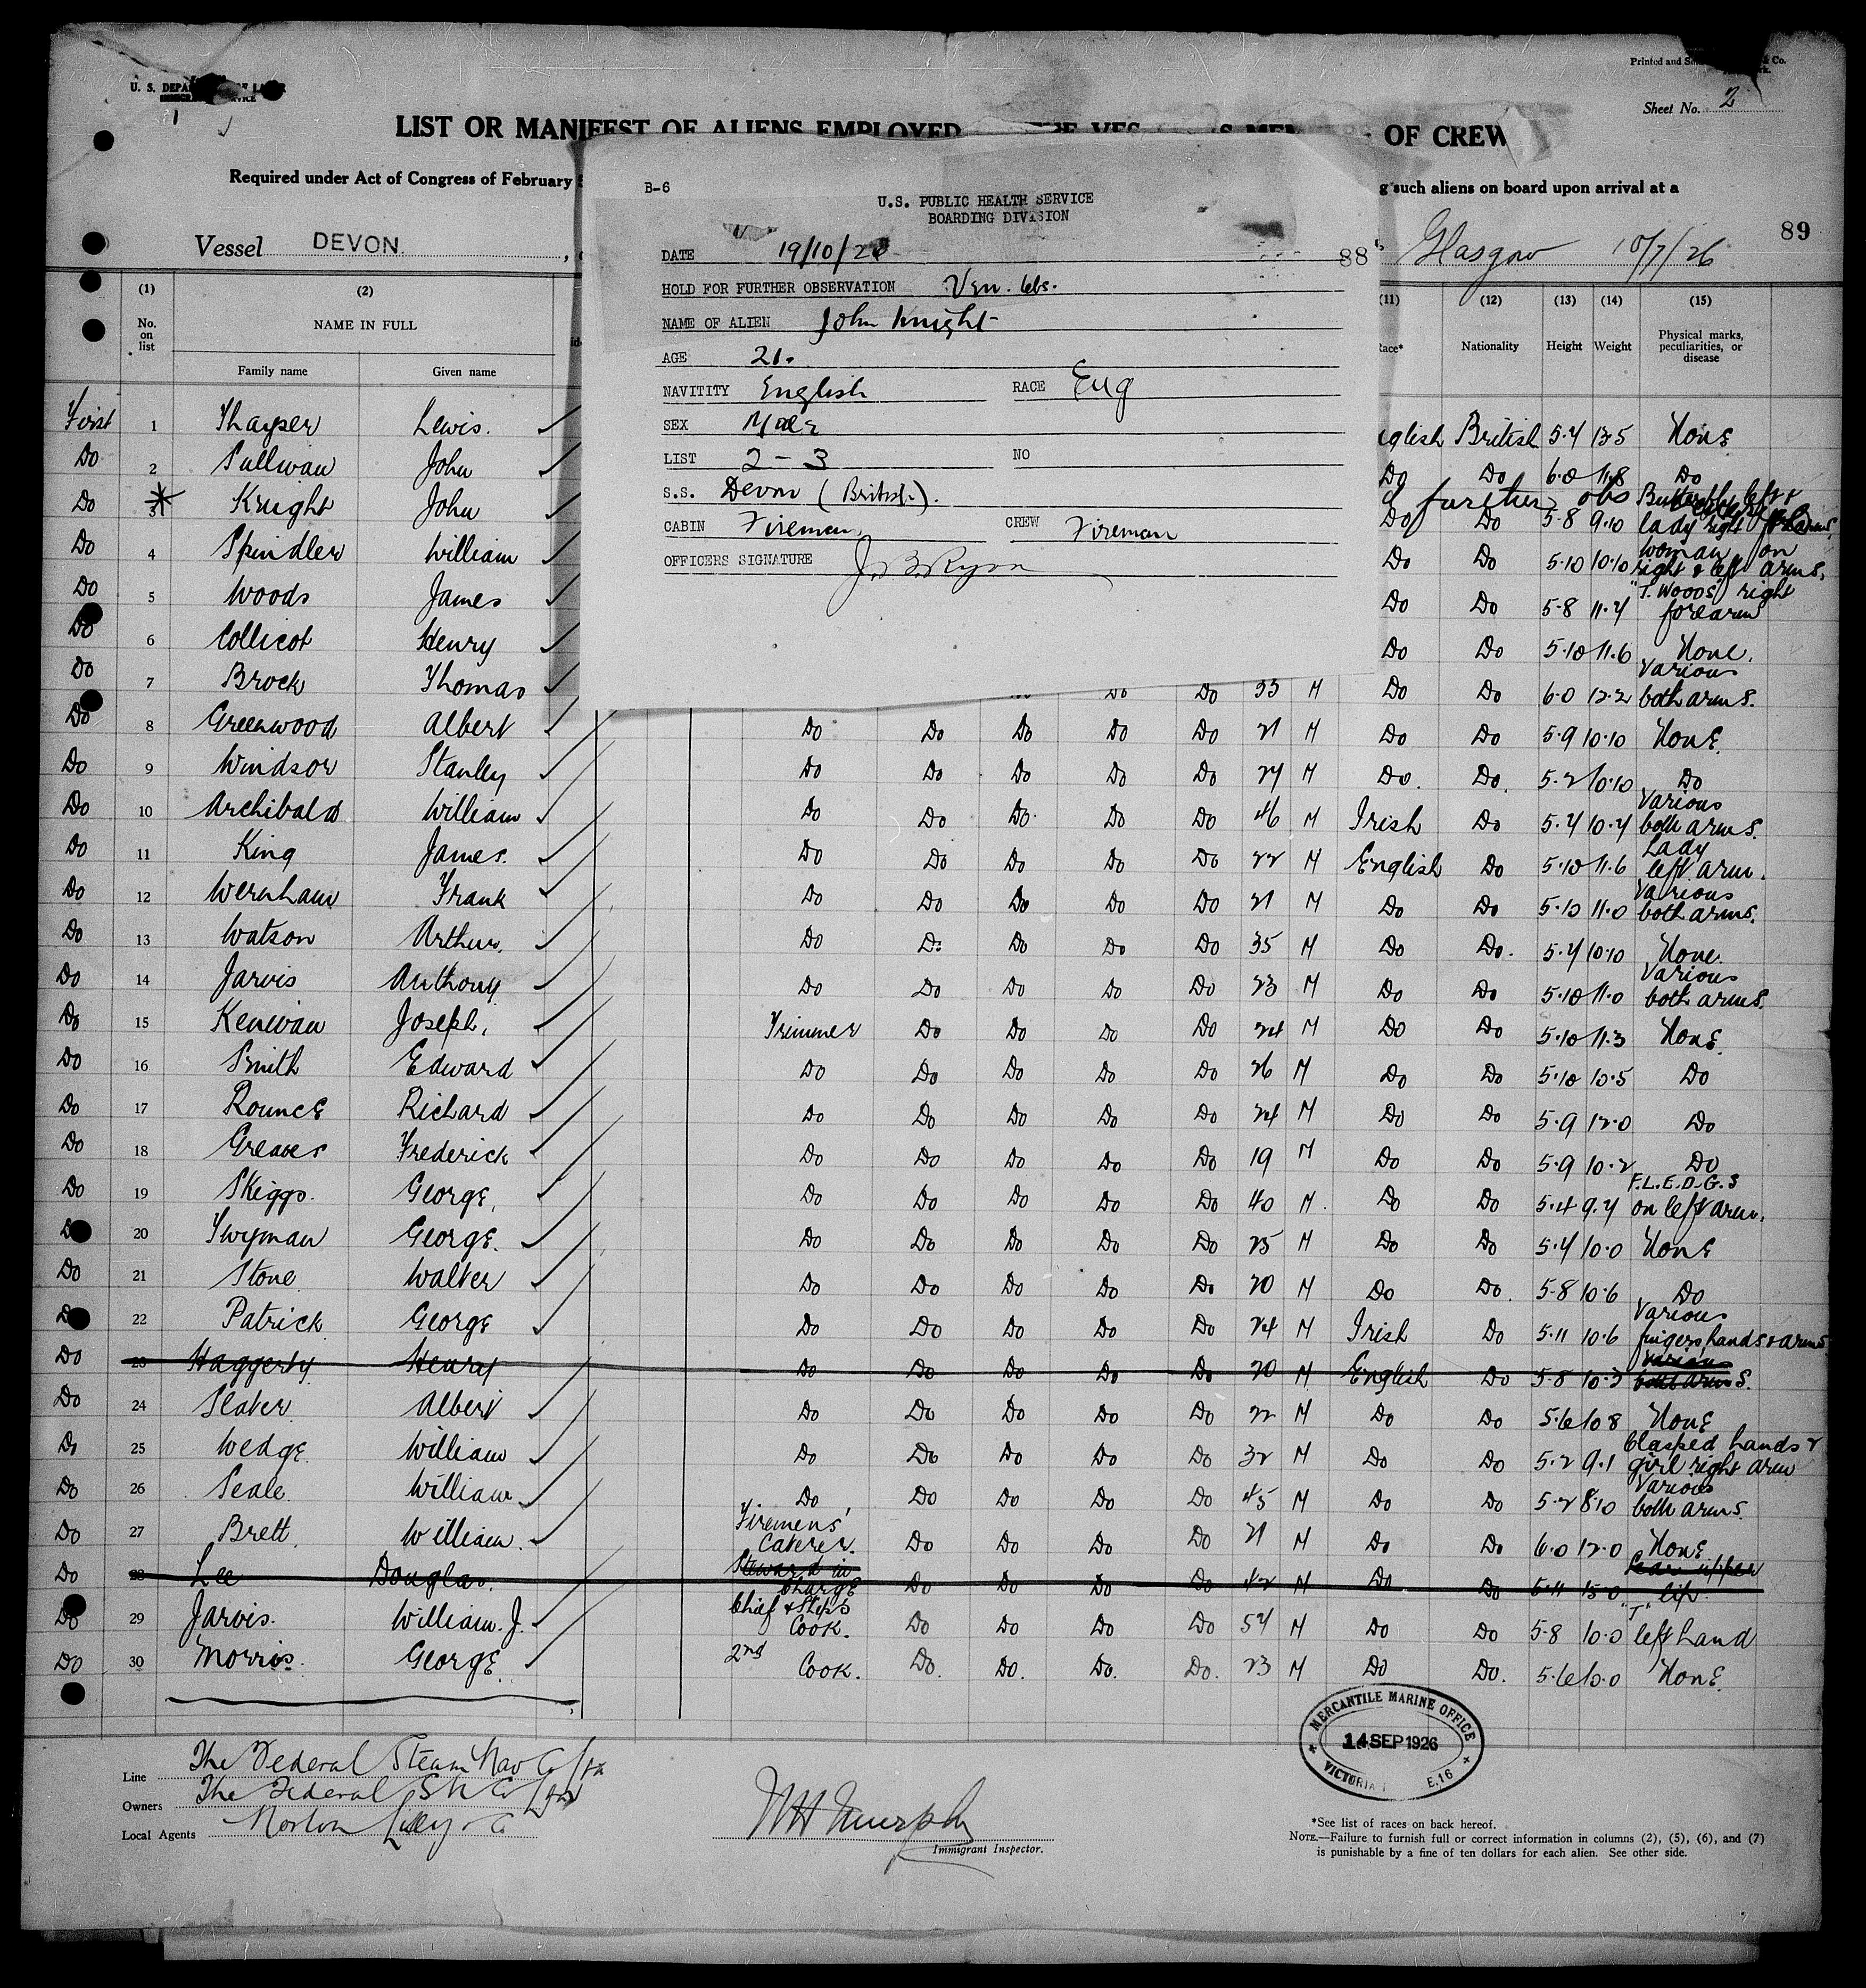 U. S. DEPARTMENT OF LABOR
IMMIGRATION SERVICE
Printed and Sold & Co.
Sheet No. 2
LIST OR MANIFEST OF ALIENS EMPLOYED OF CREW
Required under Act of Congress of February such aliens on board upon arrival at a
89
Vessel DEVON. Glasgow 10/7/26
B-6
U.S. PUBLIC HEALTH SERVICE
BOARDING DIVISION
DATE 19/10/26 88
HOLD FOR FURTHER OBSERVATION Ven. Obs.
NAME OF ALIEN John Knight
AGE 21.
NAVITITY English RACE Eng
SEX Male
LIST 2-3 NO
S.S. Devon (British).
CABIN Fireman CREW Fireman
OFFICERS SIGNATURE J.B. Ryan
(1) (2) (11) (12) (13) (14) (15)
No. on list NAME IN FULL Race* Nationality Height Weight Physical marks, peculiarities, or disease
Family name Given name
First 1 Thayser Lewis. English British 5.4 12.5 None
Do 2 Sullivan John Do Do 6.0 11.8 Do
Do 3 Knight John further obs Do Do 5-8 9.10 Butterfly left & lady right
Do 4 Spindler William Do Do 5.10 10.10 woman on right & left arms.
Do 5 Woods James Do Do 5-8 11.4 "T. WOODS" right forearm
Do 6 Collicot Henry Do Do 5.10 11.6 None.
Do 7 Brock Thomas Do Do Do 33 M Do Do 6.0 12.2 Various both arms.
Do 8 Greenwood Albert Do Do Do Do Do 21 M Do Do 5.9 10.10 None.
Do 9 Windsor Stanley Do Do Do Do Do 24 M Do. Do. 5.2 10.10 Do
Do 10 Archibald William Do Do Do Do Do 46 M Irish Do 5.4 10.4 Various both arms.
Do 11 King James. Do Do Do Do Do 22 M English Do 5.10 11.6 Lady left arm.
Do 12 Wernham Frank Do Do Do Do Do 21 M Do Do 5.10 11.0 Various both arms.
Do 13 Watson Arthur. Do Do Do Do Do 35 M Do Do. 5.4 10.10 None.
Do 14 Jarvis Anthony Do Do Do Do Do 23 M Do Do 5.10 11.0 Various both arms.
Do 15 Kenwan Joseph. Trimmer Do Do Do Do 24 M Do Do 5.10 11.3 None.
Do 16 Smith Edward Do Do Do Do Do 26 M Do Do 5.10 10.5 Do
Do 17 Rounce Richard Do Do Do Do Do 24 M Do Do 5.9 12.0 Do
Do 18 Greaves Frederick Do Do Do Do Do 19 M Do Do 5.9 10.2 Do
Do 19 Skiggs. George. Do Do Do Do Do 40 M. Do Do 5.4 9.4 F.L.E.D.G.S on left arm.
Do 20 Twyman George. Do Do Do Do Do 25 M Do Do 5.4 10.0 None
Do 21 Stone Walter Do Do Do Do Do 20 M Do Do. 5.8 10.6 Do
Do 22 Patrick George Do Do Do Do Do 24 M Irish Do 5.11 10.6 Various fingers hands & arms
Do 23 Haggerty Henry Do Do Do Do Do 20 M English Do 5.8 10.3 Various both arms.
Do 24 Slater Albert Do Do Do Do Do 22 M Do Do 5.6 10.8 None
Do 25 Wedge. William Do Do Do Do Do 32 M Do Do 5.2 9.1 Clasped hands & girl right arm
Do 26 Seale. William. Do Do Do Do Do 45 M Do Do 5.2 8.10 Various both arms.
Do 27 Brett William. Firemens' Caterer. Do Do Do Do 21 M Do Do 6.0 12.0 None
Do 28 Lee Douglas. Steward in Charge Do Do Do Do 42 M Do Do 5.11 15.0 Scar upper lip.
Do 29 Jarvis. William. J. Chief & Ship's Cook. Do Do Do Do 54 M Do Do 5.8 10.0 "T" left hand
Do 30 Morris. George. 2nd Cook. Do. Do. Do. Do. 23 M Do Do. 5.6 10.0 None.
MERCANTILE MARINE OFFICE
14 SEP 1926
VICTORIA E.16
Line The Federal Steam Nav Co Ltd
Owners The Federal S N Co Ltd
Local Agents Norton Lilly & Co
W H Murphy
Immigrant Inspector.
*See list of races on back hereof.
NOTE.—Failure to furnish full or correct information in columns (2), (5), (6), and (7)
is punishable by a fine of ten dollars for each alien. See other side.